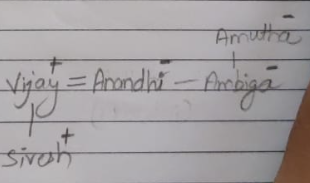 Amutha -
Vijay + = Anandhi - — Ambiga -
Siresh +